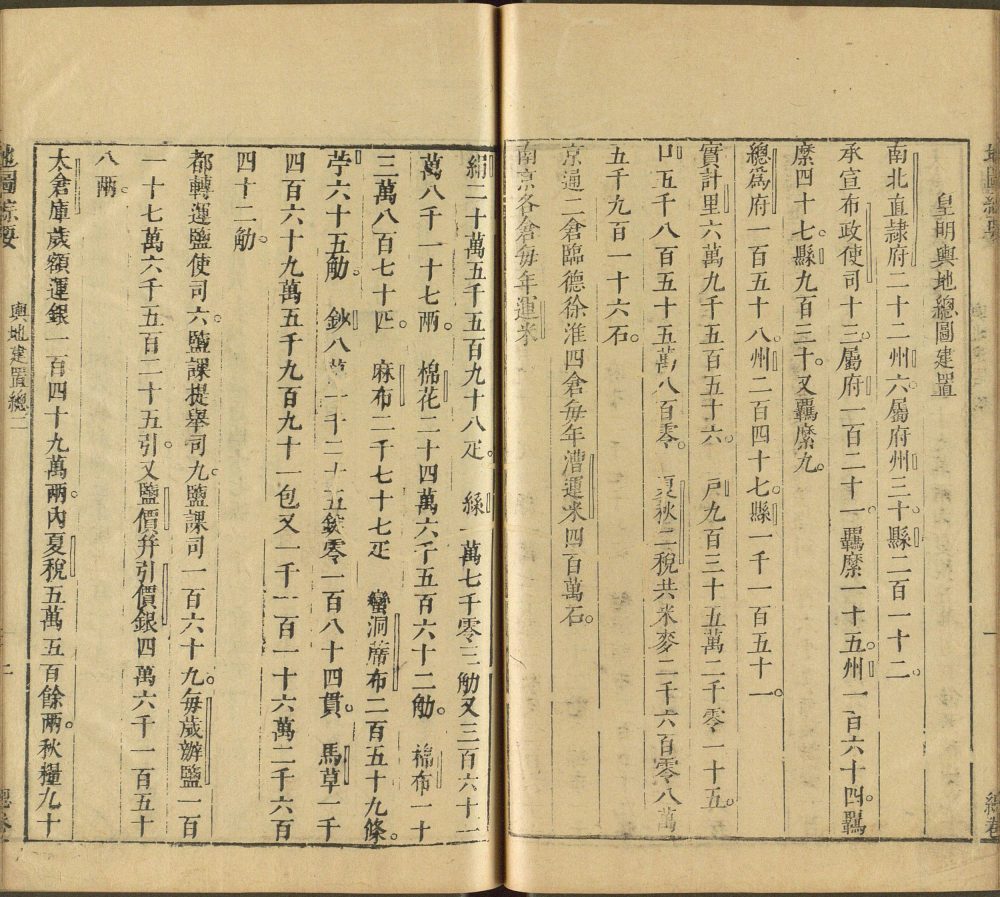 皇明輿地總圖建置
南北直隷府二十二州六屬府州三十縣二百一十二
承宣布政使司十三屬府一百二十一覊縻一十五州一百六十四覊
縻四十七縣九百三十又覊縻九
總爲府一百五十八州二百四十七縣一千一百五十一
實計里六萬九千五百五十六 戸九百三十五萬二千零一十五
口五千八百五十五萬八百零 夏秋二稅共米麥二千六百零八萬
五千九百一十六石
京通二倉臨德徐淮四倉每年漕運米四百萬石
南京各倉每年運米
絹二十萬五千五百九十八疋 絲一萬七千零三觔又三百六十二
萬八千一十七兩 棉花二十四萬六千五百六十二觔 棉布一十
三萬八百七十四 麻布二千七十七疋 蠻洞蓆布二百五十九條
苧六十五觔 鈔八萬一千二十五錠零一百八十四貫 馬草一千
四百六十九萬五千九百九十一包又一千一百一十六萬二千六百
四十二觔
都轉運鹽使司六鹽課提舉司九鹽課司一百六十九每歲辦鹽一百
一十七萬六千五百二十五引又鹽價幷引價銀四萬六千一百五十
八兩
太倉庫歲額運銀一百四十九萬兩內夏稅五萬五百餘兩秋糧九十
地圖綜要
輿地建置總
二
總卷
地圖綜要
一
總卷